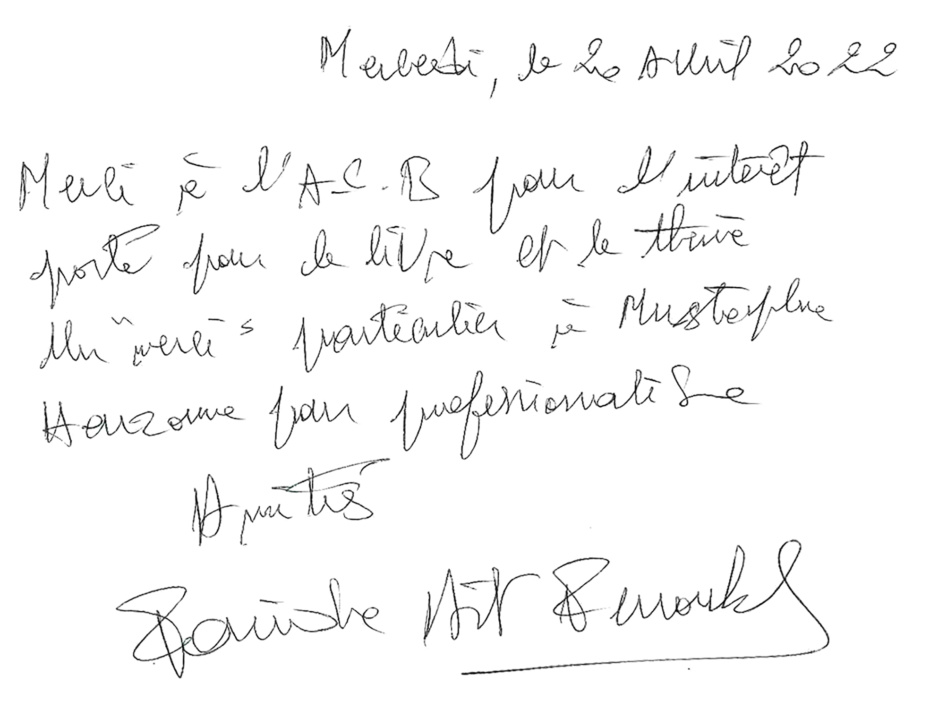 Mercredi, le 20 Avril 2022
Merci à l'A.C.B pour l'intérêt
porté pour le livre et le thème
Un "merci" particulier à Mustapha
Harzoune pour professionnalisme
Amitiés
Aït